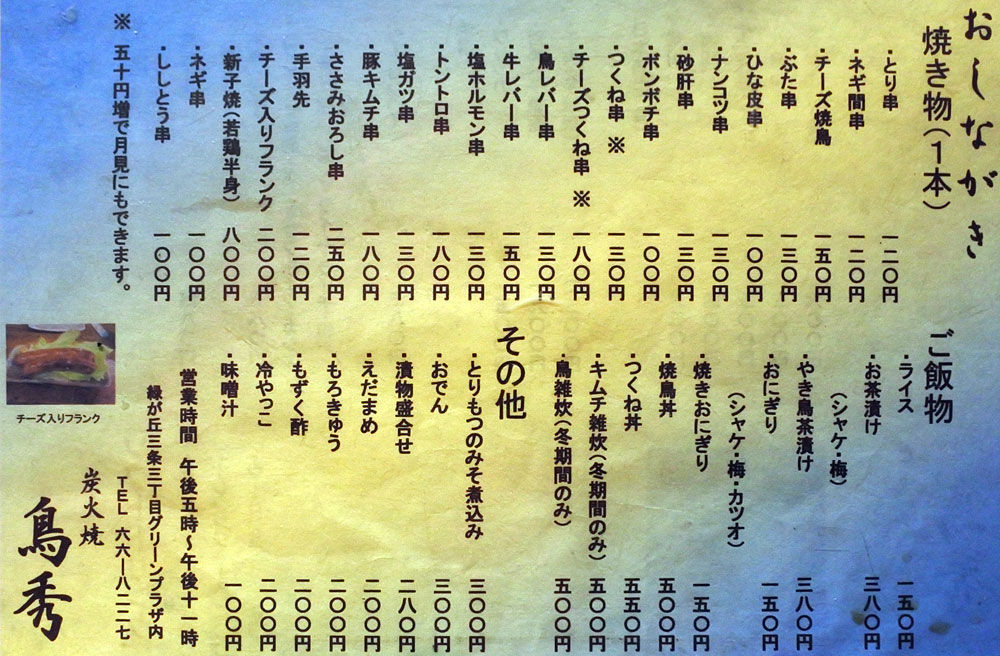 おしながき
焼き物(1本)
・とり串 一二〇円
・ネギ間串 一二〇円
・チーズ焼鳥 一五〇円
・ぶた串 一三〇円
・ひな皮串 一〇〇円
・ナンコツ串 一三〇円
・砂肝串 一三〇円
・ボンボチ串 一〇〇円
・つくね串 ※ 一三〇円
・チーズつくね串 ※ 一八〇円
・鳥レバー串 一三〇円
・牛レバー串 一五〇円
・塩ホルモン串 一三〇円
・トントロ串 一八〇円
・塩ガツ串 一三〇円
・豚キムチ串 一八〇円
・ささみおろし串 二五〇円
・手羽先 一二〇円
・チーズ入りフランク 二〇〇円
・新子焼(若鶏半身) 八〇〇円
・ネギ串 一〇〇円
・ししとう串 一〇〇円
※ 五十円増で月見にもできます。
ご飯物
・ライス 一五〇円
・お茶漬け 三八〇円
(シャケ・梅)
・やき鳥茶漬け 三八〇円
・おにぎり 一五〇円
(シャケ・梅・カツオ)
・焼きおにぎり 一五〇円
・焼鳥丼 五〇〇円
・つくね丼 五五〇円
・キムチ雑炊(冬期間のみ) 五〇〇円
・鳥雑炊(冬期間のみ) 五〇〇円
その他
・とりもつのみそ煮込み 三〇〇円
・おでん 三〇〇円
・漬物盛合せ 二八〇円
・えだまめ 二〇〇円
・もろきゅう 二〇〇円
・もずく酢 二〇〇円
・冷やっこ 二〇〇円
・味噌汁 一〇〇円
営業時間 午後五時～午後十一時
緑が丘三条三丁目グリーンプラザ内
TEL 六六―八二二七
炭火焼
鳥秀
チーズ入りフランク